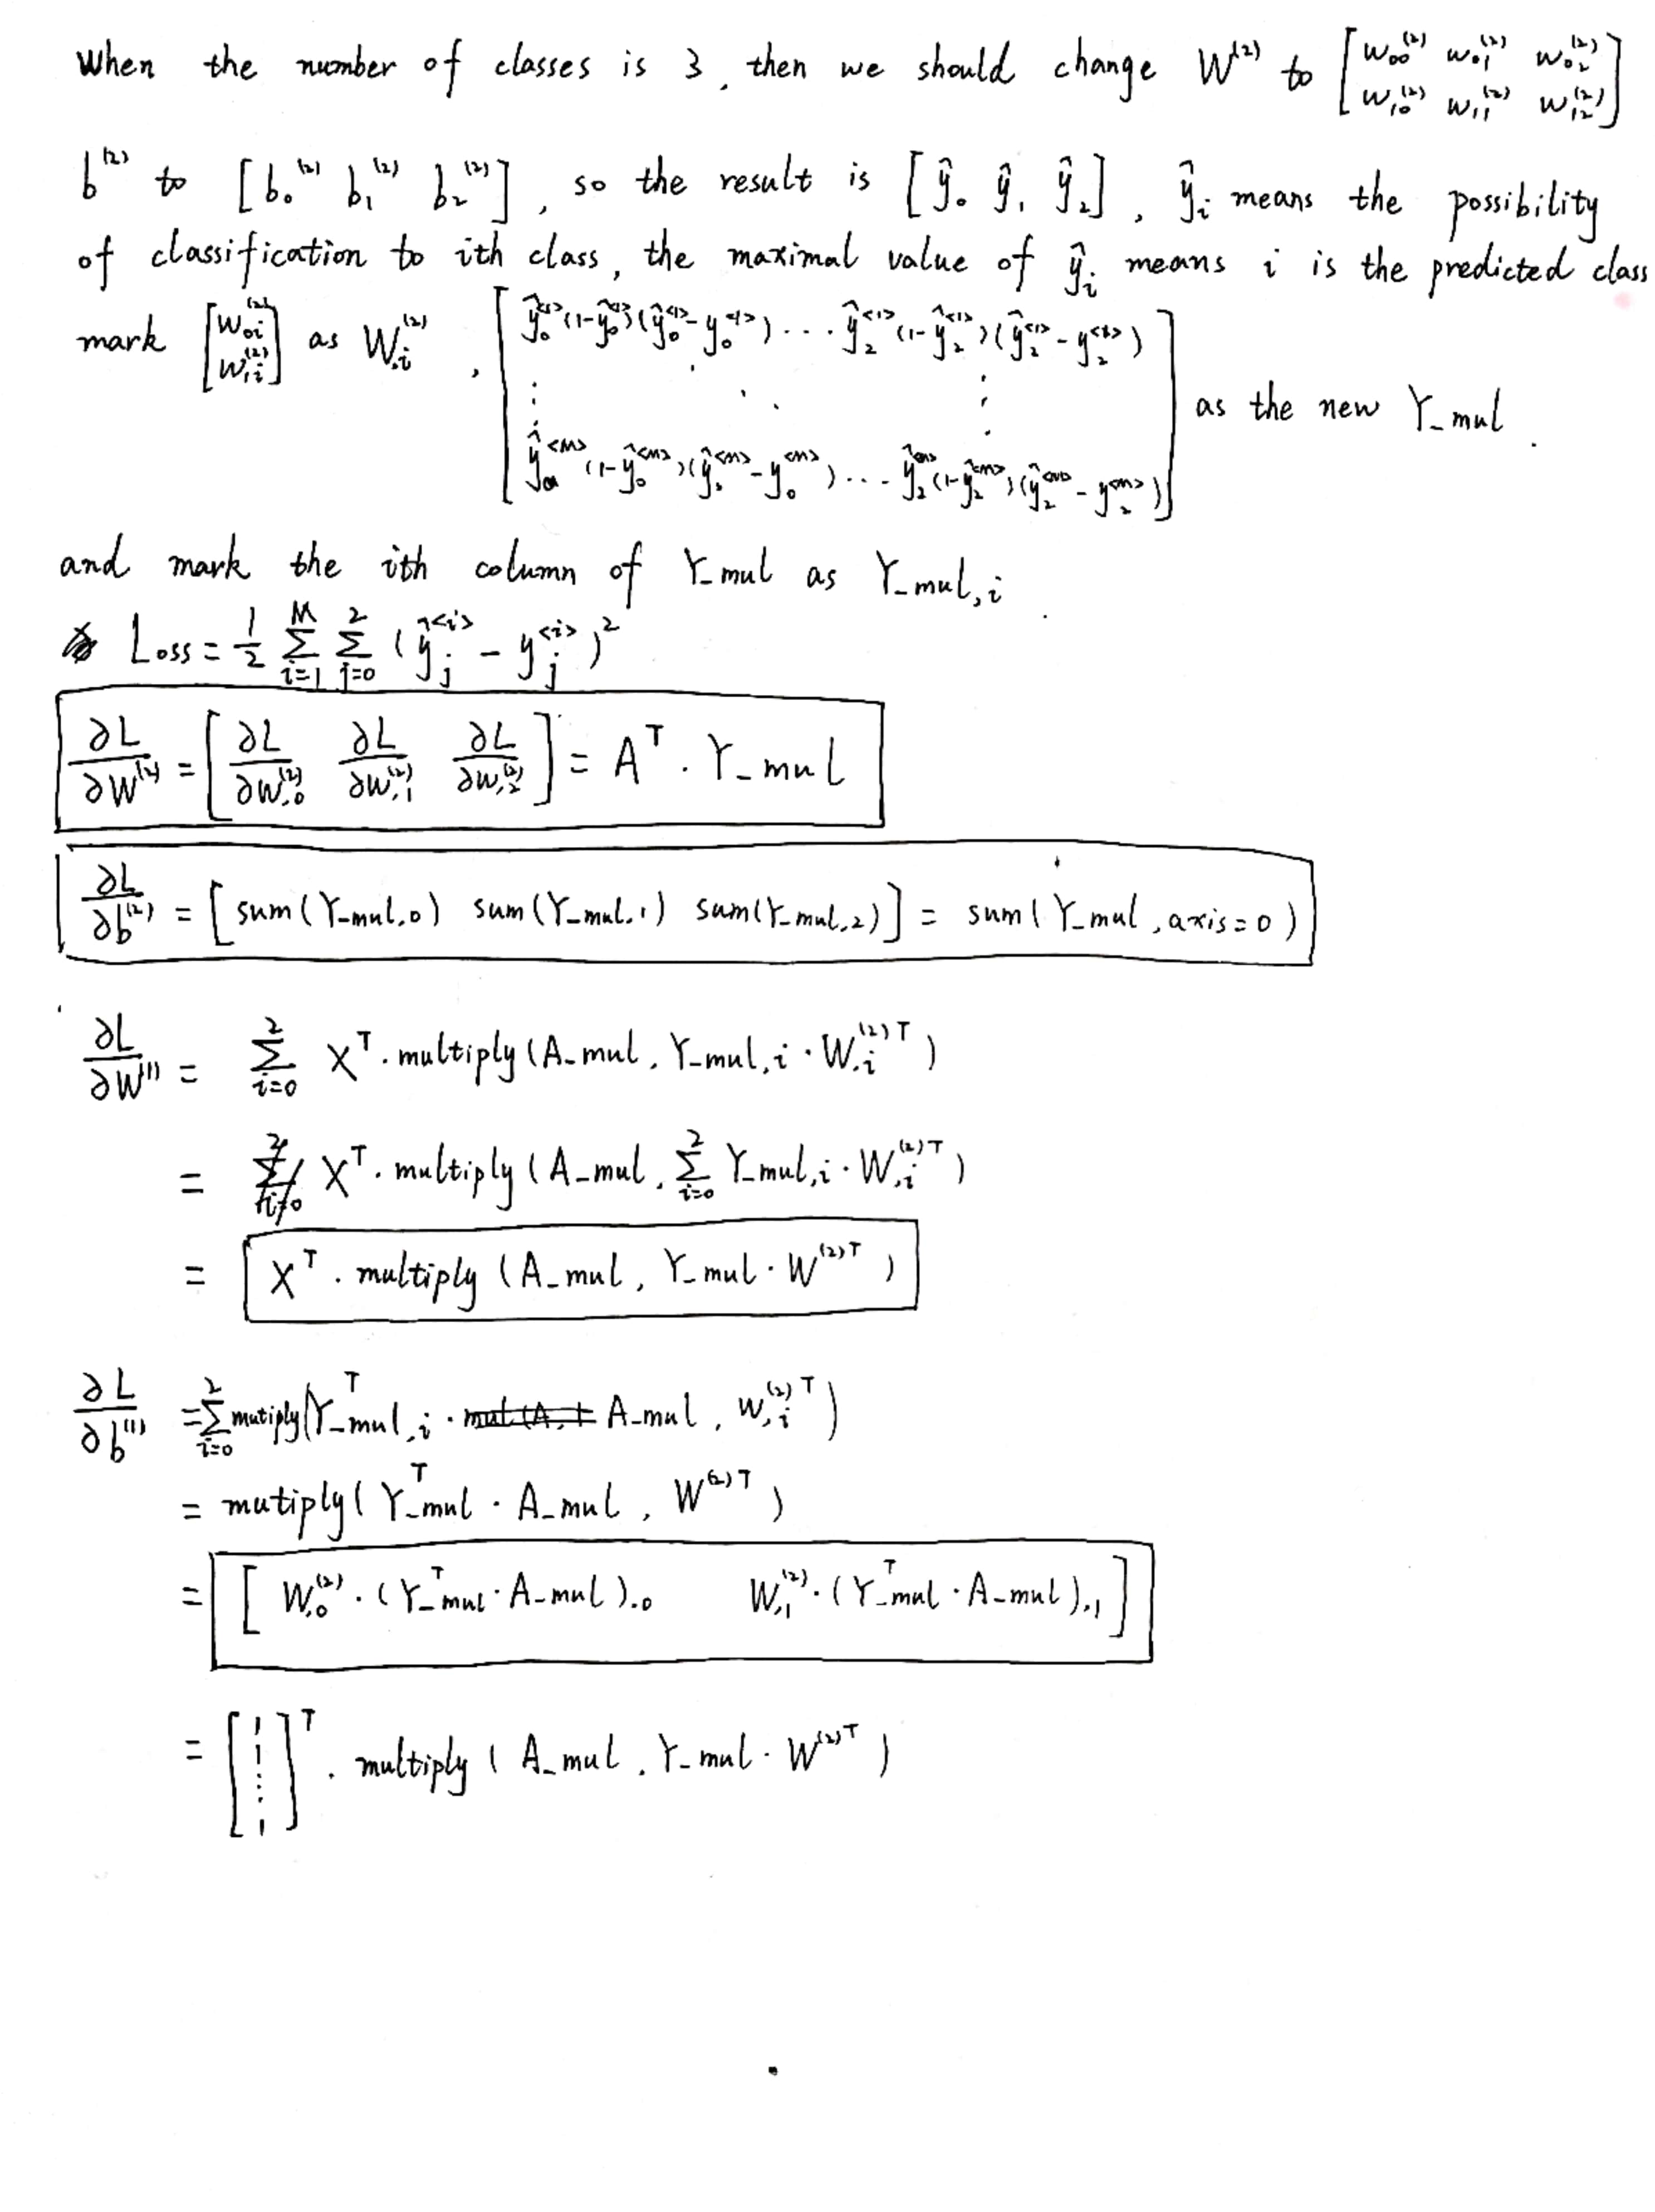 When the number of classes is 3, then we should change W⁽²⁾ to [w₀₀⁽²⁾ w₀₁⁽²⁾ w₀₂⁽²⁾; w₁₀⁽²⁾ w₁₁⁽²⁾ w₁₂⁽²⁾]
b⁽²⁾ to [b₀⁽²⁾ b₁⁽²⁾ b₂⁽²⁾], so the result is [ŷ₀ ŷ₁ ŷ₂], ŷᵢ means the possibility
of classification to ith class, the maximal value of ŷᵢ means i is the predicted class
mark [w₀ᵢ⁽²⁾; w₁ᵢ⁽²⁾] as W,ᵢ⁽²⁾, [ŷ₀^<1>(1-ŷ₀^<1>)(ŷ₀^<1>-y₀^<1>) ... ŷ₂^<1>(1-ŷ₂^<1>)(ŷ₂^<1>-y₂^<1>)
⋮ ⋱ ⋮
ŷ₀^<M>(1-ŷ₀^<M>)(ŷ₀^<M>-y₀^<M>) ... ŷ₂^<M>(1-ŷ₂^<M>)(ŷ₂^<M>-y₂^<M>)] as the new Y_mul.
and mark the ith column of Y_mul as Y_mul,i.
Loss = 1/2 Σ_{i=1}^{M} Σ_{j=0}^{2} (ŷⱼ^<i> - yⱼ^<i>)²
∂L/∂W⁽²⁾ = [∂L/∂W,₀⁽²⁾ ∂L/∂W,₁⁽²⁾ ∂L/∂W,₂⁽²⁾] = Aᵀ · Y_mul
∂L/∂b⁽²⁾ = [sum(Y_mul,0) sum(Y_mul,1) sum(Y_mul,2)] = sum(Y_mul, axis=0)
∂L/∂W⁽¹⁾ = Σ_{i=0}^{2} Xᵀ · multiply(A_mul, Y_mul,i · W,ᵢ⁽²⁾ᵀ)
= Xᵀ · multiply(A_mul, Σ_{i=0}^{2} Y_mul,i · W,ᵢ⁽²⁾ᵀ)
= Xᵀ · multiply(A_mul, Y_mul · W⁽²⁾ᵀ)
∂L/∂b⁽¹⁾ = Σ_{i=0}^{2} mutiply(Y_mulᵀ,i · A_mul, W,ᵢ⁽²⁾ᵀ)
= mutiply(Y_mulᵀ · A_mul, W⁽²⁾ᵀ)
= [W,₀⁽²⁾ · (Y_mulᵀ · A_mul),₀ W,₁⁽²⁾ · (Y_mulᵀ · A_mul),₁]
= [1 1 ⋮ 1]ᵀ · multiply(A_mul, Y_mul · W⁽²⁾ᵀ)